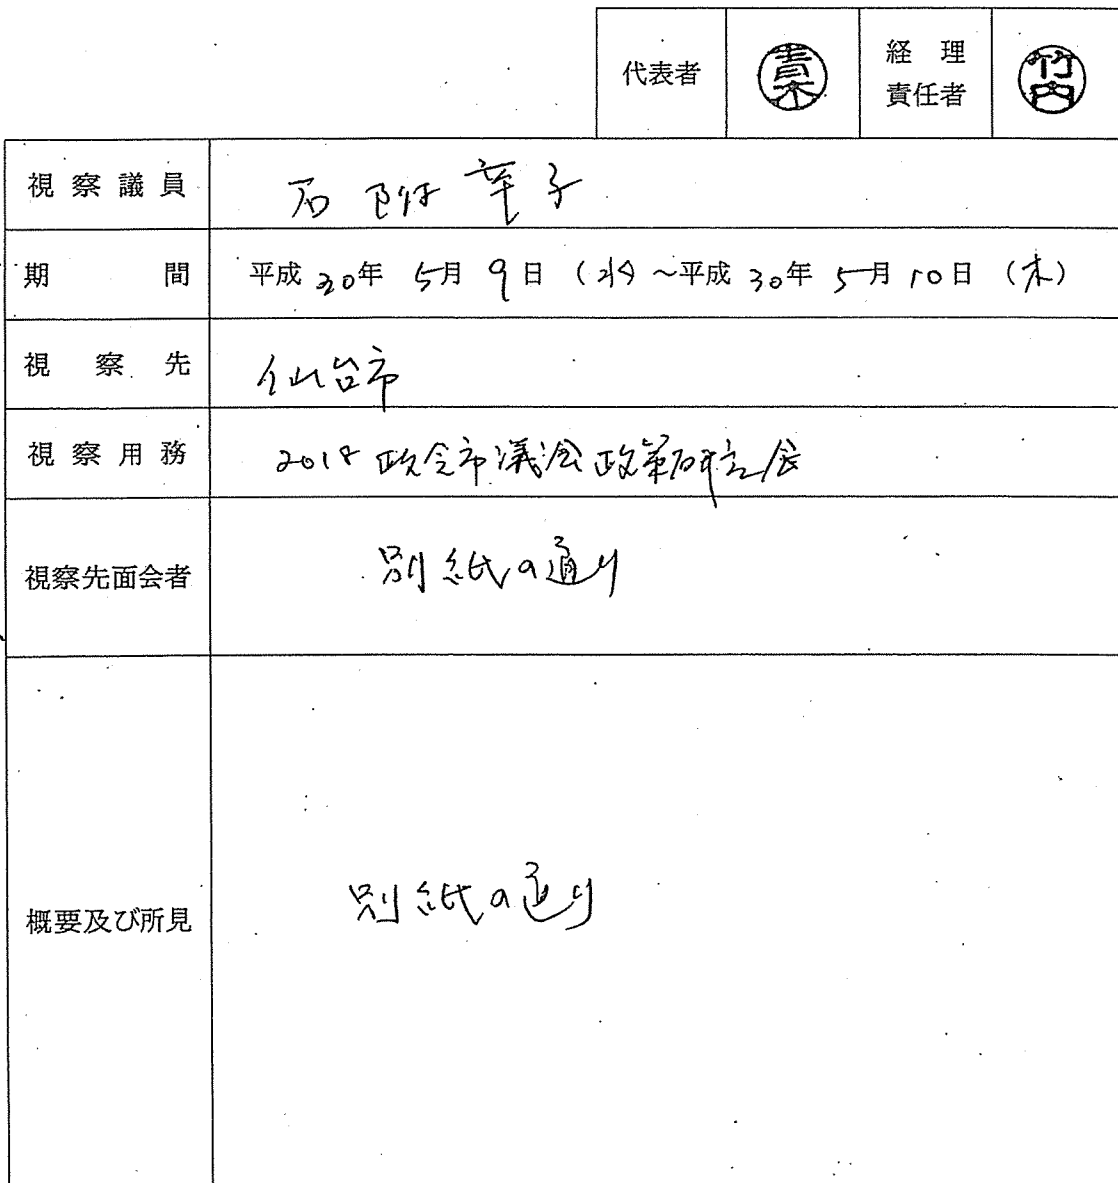 代表者 青木 経理責任者 竹内
視察議員 石附幸子
期間 平成30年 5月 9日 (水) ~平成 30年 5月 10日 (木)
視察先 仙台市
視察用務 2018 政令市議会政策研究会
視察先面会者 別紙の通り
概要及び所見 別紙の通り